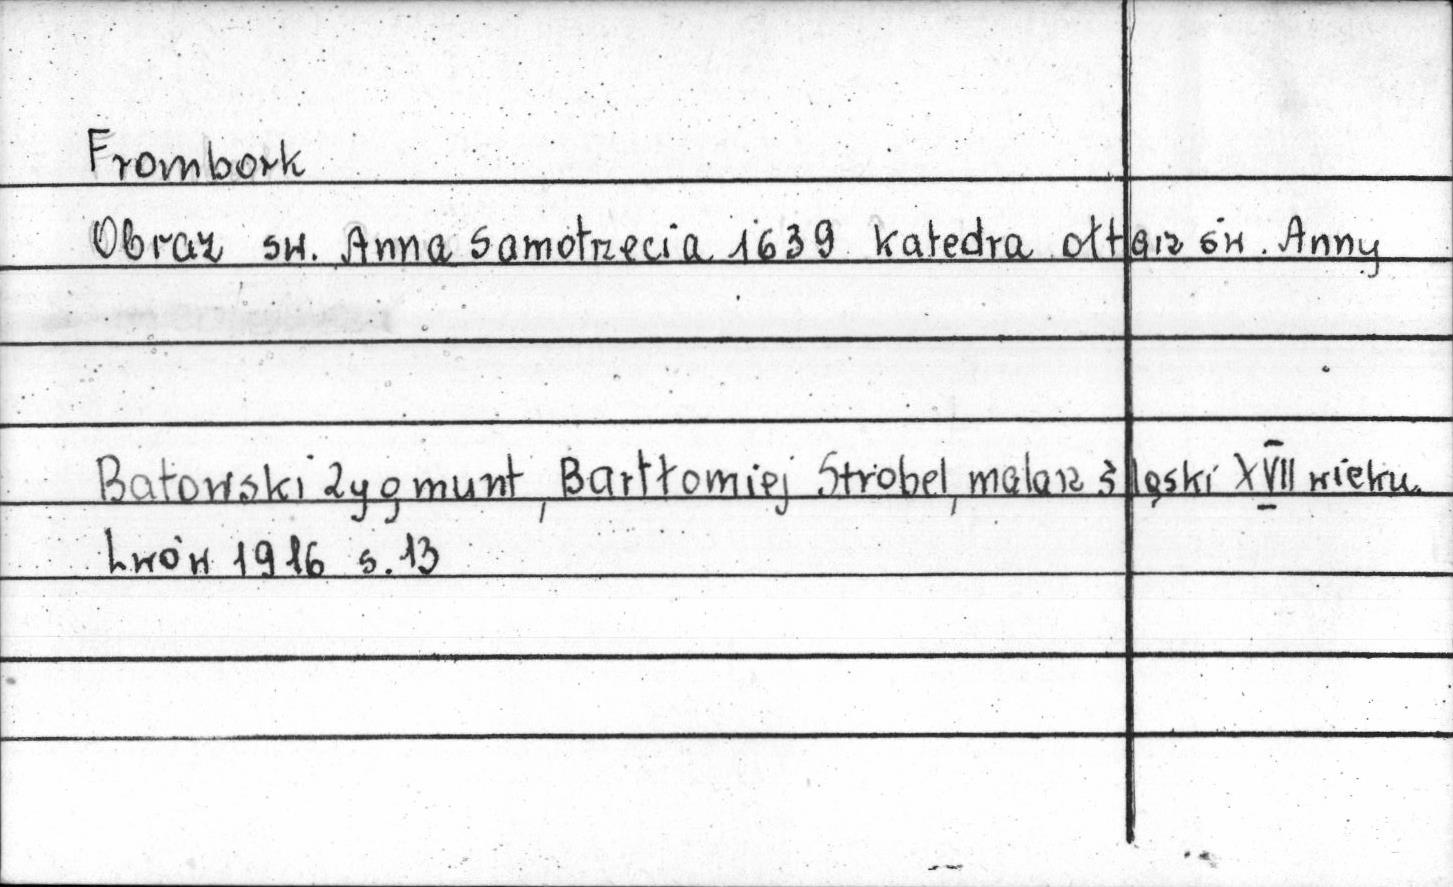 Frombork
Obraz św. Anna Samotrzecia 1639 katedra ołtarz św. Anny
Batowski Zygmunt, Bartłomiej Strobel, malarz śląski XVII wieku.
Lwów 1916 s. 13